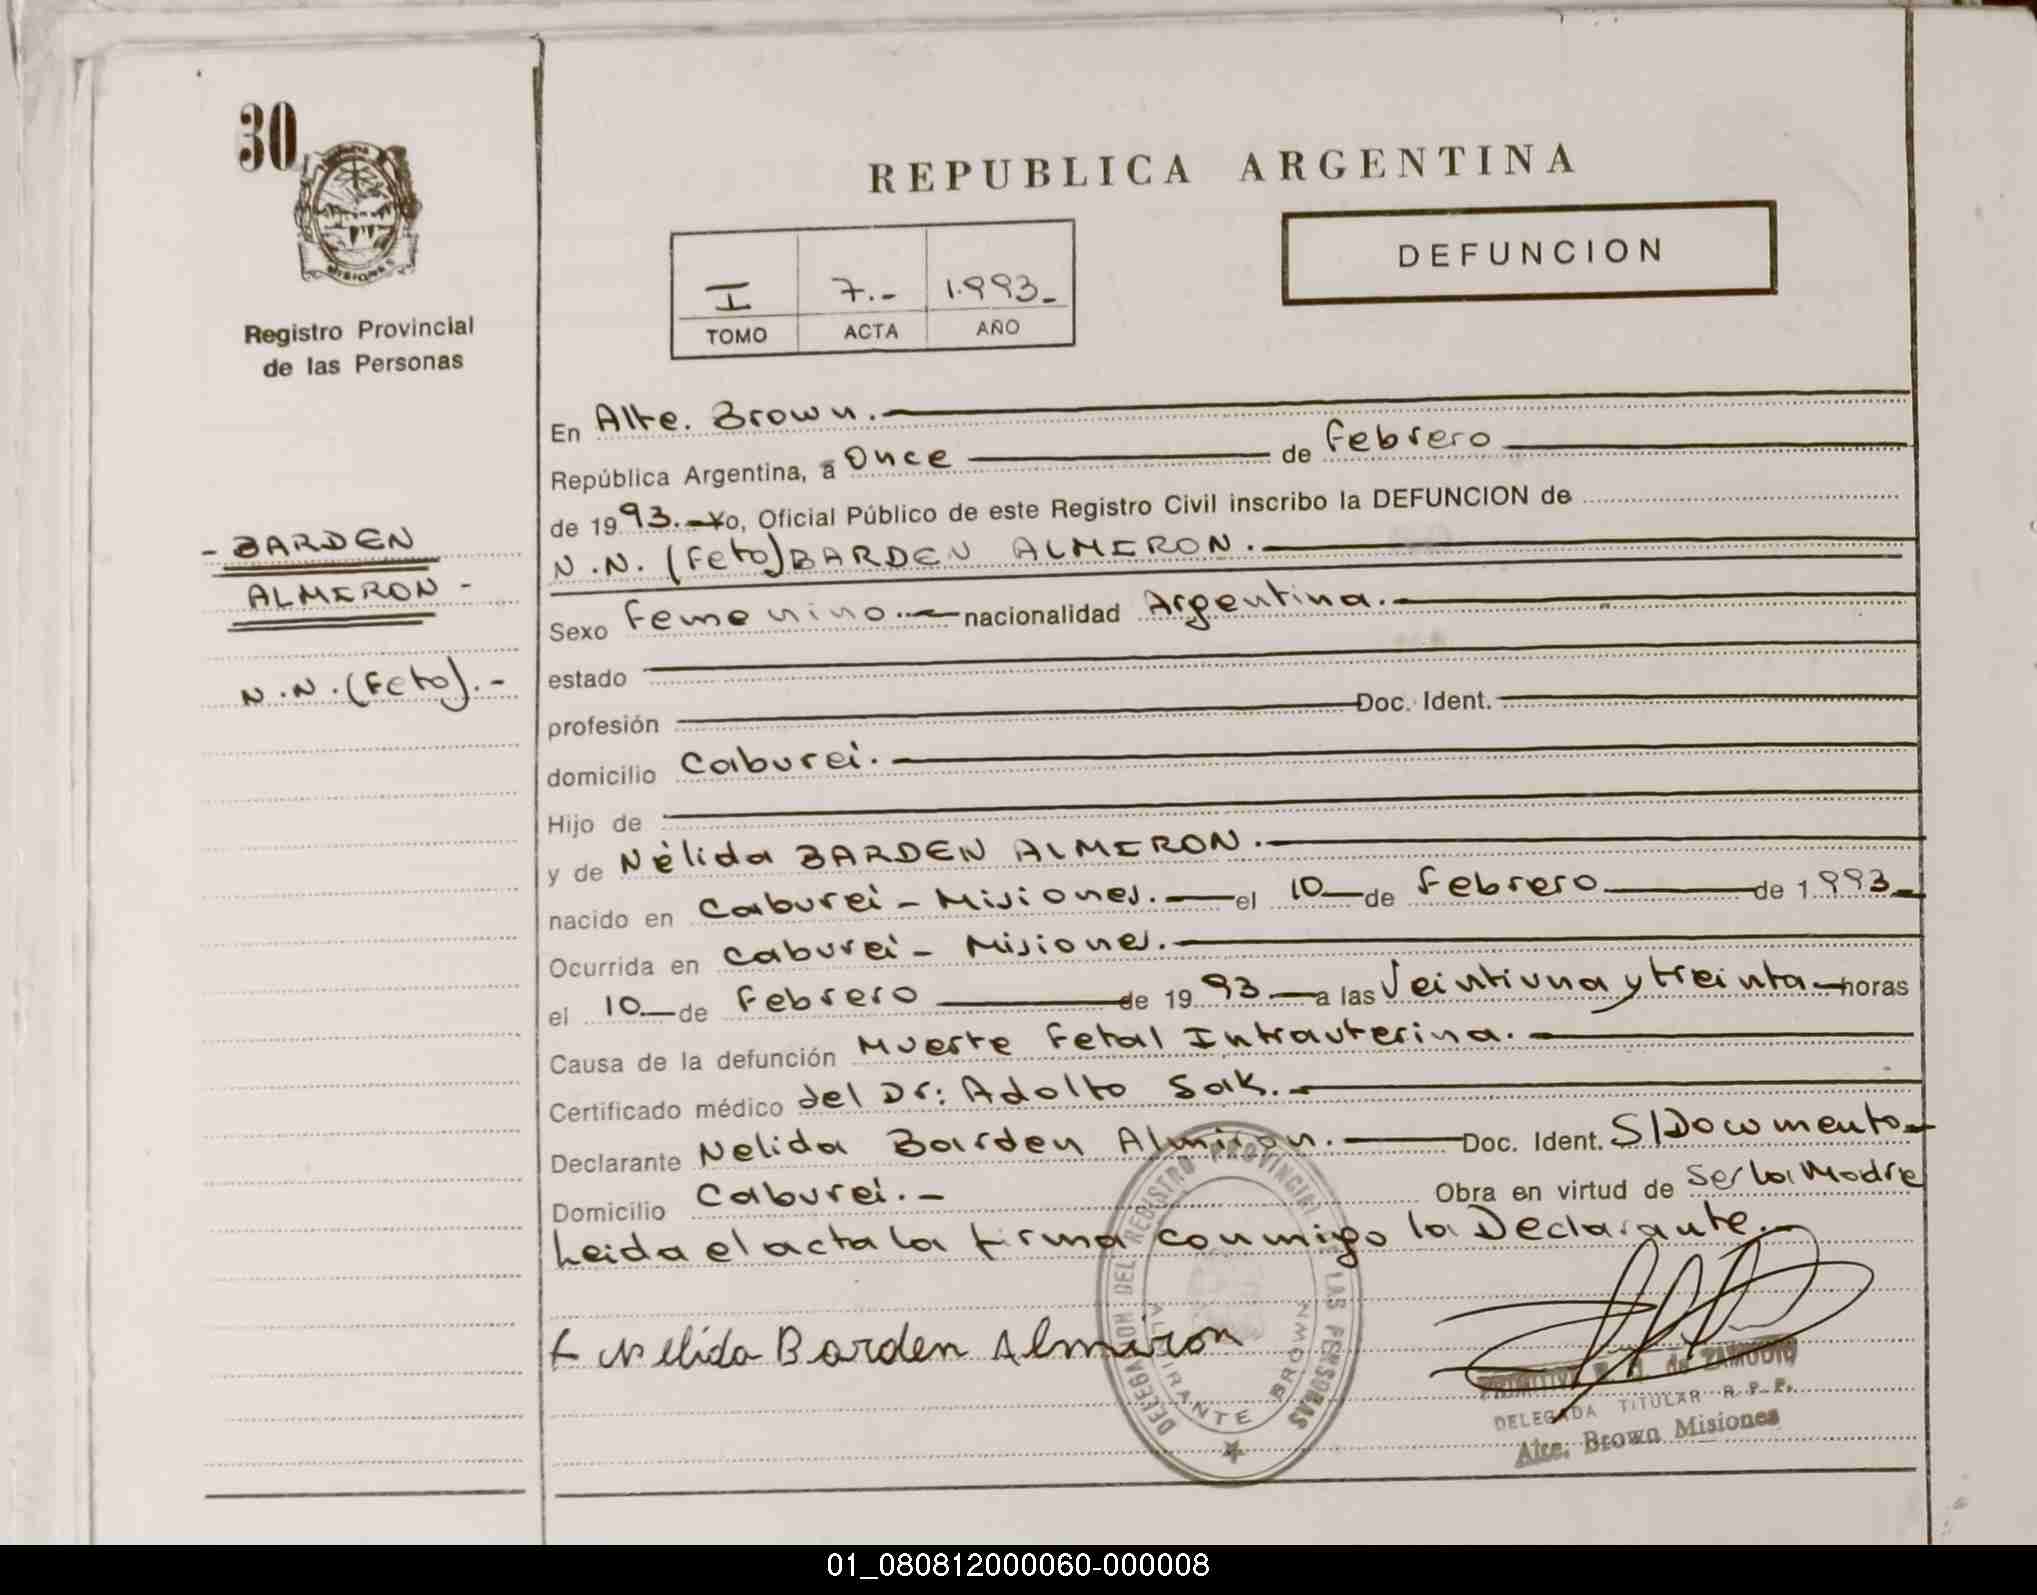 30
MISIONES
Registro Provincial
de las Personas
REPUBLICA ARGENTINA
DEFUNCION
I 7.- 1.993-
TOMO ACTA AÑO
En Alte. Brown.
República Argentina, a Once de Febrero
de 1993.- Yo, Oficial Público de este Registro Civil inscribo la DEFUNCION de
N.N. (Feto) BARDEN ALMIRON.
- BARDEN
ALMIRON -
N.N. (Feto).-
Sexo Femenino.- nacionalidad Argentina.
estado
profesión Doc. Ident.
domicilio Caburei.
Hijo de
y de Nélida BARDEN ALMIRON.
nacido en Caburei - Misiones. el 10 de Febrero de 1.993
Ocurrida en Caburei - Misiones.
el 10 de Febrero de 1993 a las Veintiuna y treinta horas
Causa de la defunción Muerte Fetal Intrauterina.
Certificado médico del Dr: Adolfo Sak.
Declarante Nelida Barden Almiron. Doc. Ident. S/Documento
Domicilio Caburei.- Obra en virtud de Ser la Madre
Leida el acta la firma conmigo la Declarante.-
Nelida Barden Almiron
DELEGACION DEL REGISTRO PROVINCIAL DE LAS PERSONAS
ALMIRANTE BROWN
de ZAMUDIO
DELEGADA TITULAR R.P.P.
Alte. Brown Misiones
01_080812000060-000008